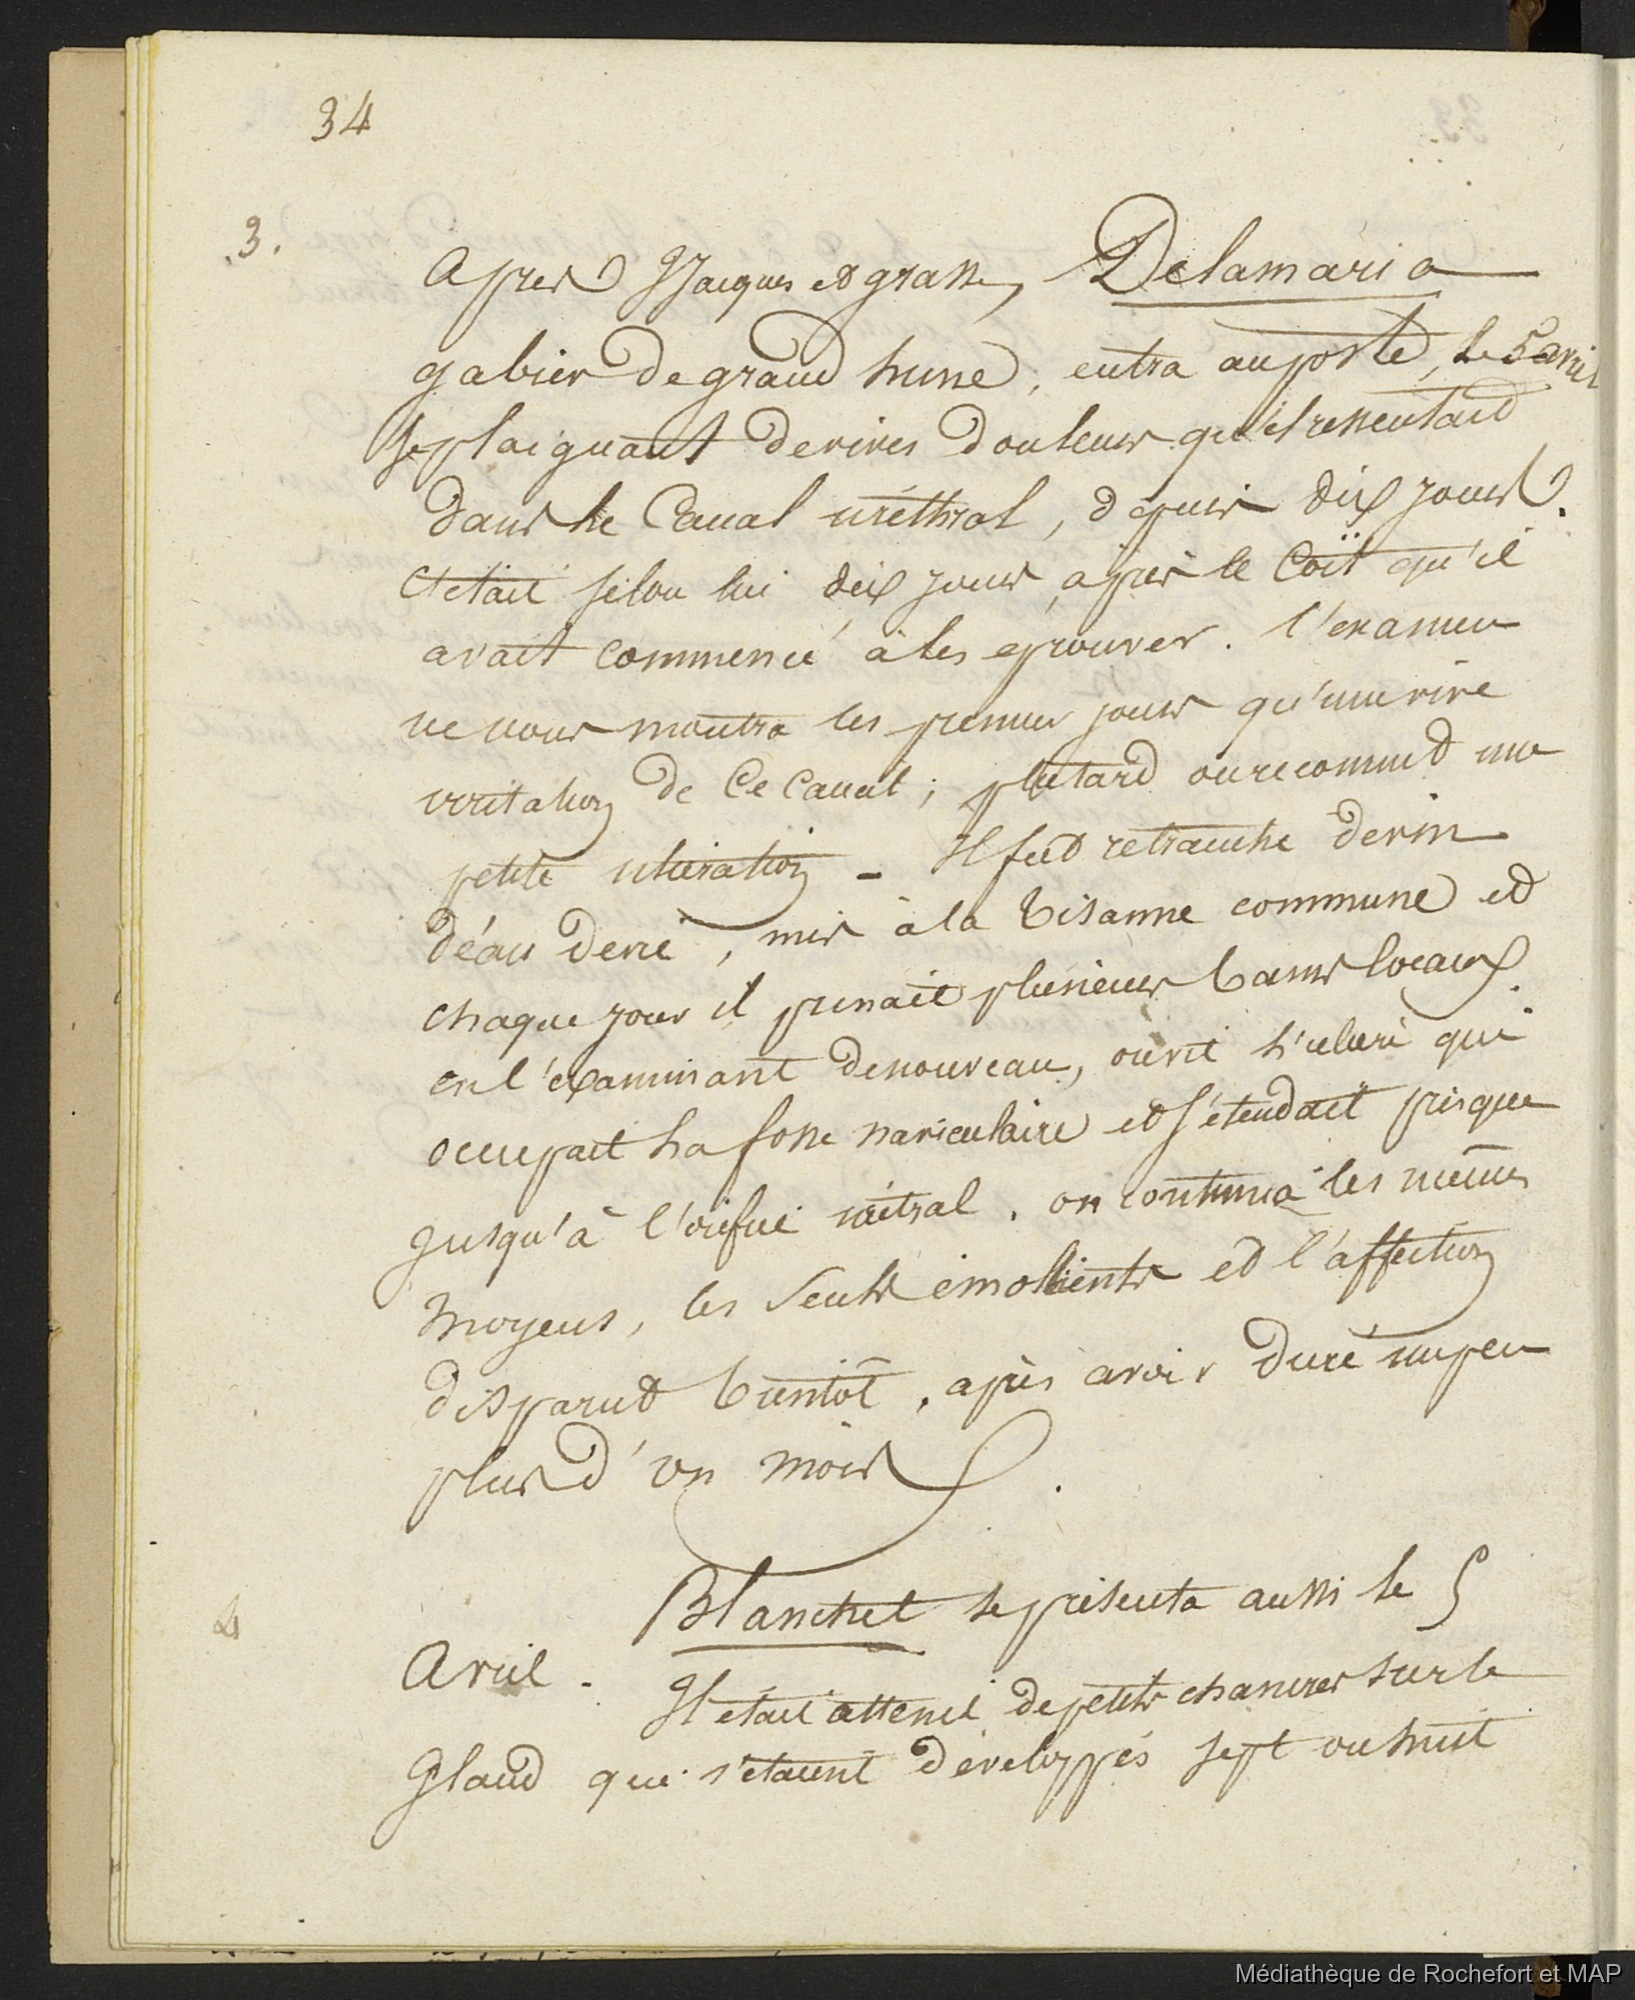 34
3.
après Jacques et grasse, Delamaria
gabier de grand hune, entra au poste, le 5 avril
se plaignant de vives douleurs qu'il ressentait
dans le Canal uréthral, depuis dix jours.
C'était selon lui dix jours après le Coït qu'il
avait commencé à les eprouver. l'examen
ne nous montra les premiers jours qu'une vive
irritation de ce canal ; plutard on reconnut une
petite ulceration - Il fut retranché de vin
d'eau de vie, mis à la tisanne commune et
chaque jour il prenait plusieurs bains locaux.
en l'examinant de nouveau, on vit l'ulcere qui
occupait la fosse naviculaire et s'étendait presque
jusqu'à l'orifice uretral. on continua les mêmes
moyens, les seuls émollients et l'affection
disparut bientôt, après avoir duré un peu
plus d'un mois.
4
Blanchet se présenta aussi le 5
Avril. Il était atteint de petits chancres sur le
Gland qui s'étaient développés sept ou huit
Médiathèque de Rochefort et MAP